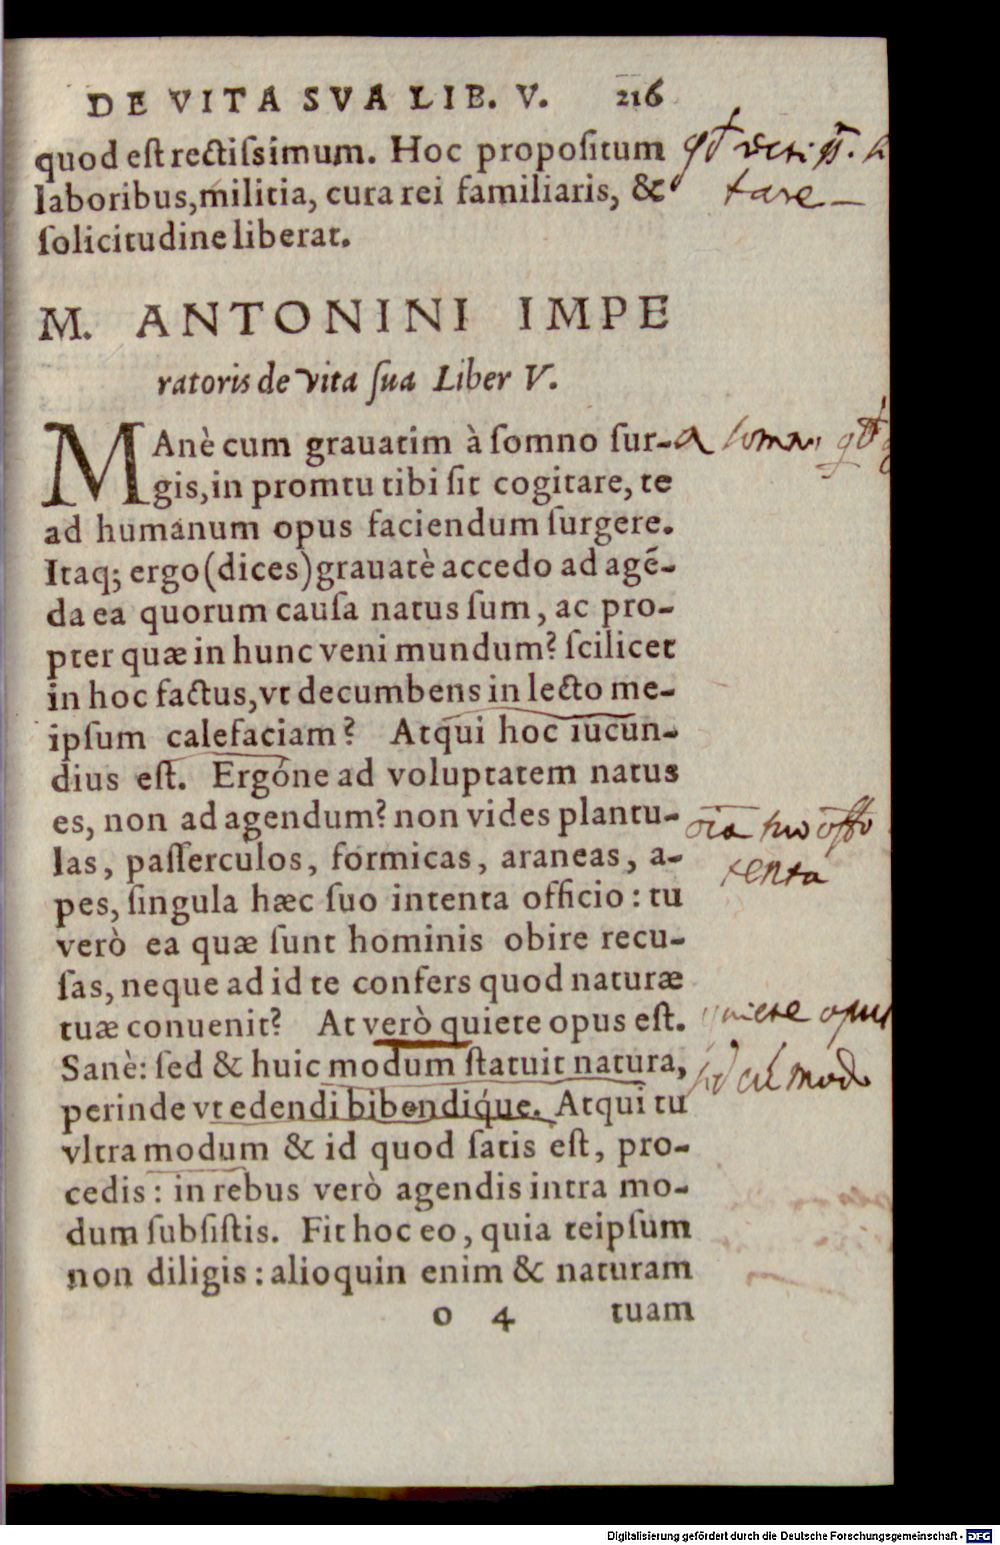 DE VITA SVA LIB. V. 216
quod eſt rectiſsimum. Hoc propoſitum
laboribus, militia, cura rei familiaris, &
ſolicitudine liberat.
M. ANTONINI IMPE
ratoris de vita ſua Liber V.
MAnè cum grauatim à ſomno ſur-
gis, in promtu tibi ſit cogitare, te
ad humanum opus faciendum ſurgere.
Itaq; ergo (dices) grauatè accedo ad agẽ-
da ea quorum cauſa natus ſum, ac pro-
pter quæ in hunc veni mundum? ſcilicet
in hoc factus, vt decumbens in lecto me-
ipſum calefaciam? Atqui hoc iucun-
dius eſt. Ergóne ad voluptatem natus
es, non ad agendum? non vides plantu-
las, paſſerculos, formicas, araneas, a-
pes, ſingula hæc ſuo intenta officio: tu
verò ea quæ ſunt hominis obire recu-
ſas, neque ad id te confers quod naturæ
tuæ conuenit? At verò quiete opus eſt.
Sanè: ſed & huic modum ſtatuit natura,
perinde vt edendi bibendiq́ue. Atqui tu
vltra modum & id quod ſatis eſt, pro-
cedis: in rebus verò agendis intra mo-
dum ſubſiſtis. Fit hoc eo, quia teipſum
non diligis: alioquin enim & naturam
o 4 tuam
tare
tenta
quiete opus
modo
Digitalisierung gefördert durch die Deutsche Forschungsgemeinschaft - DFG